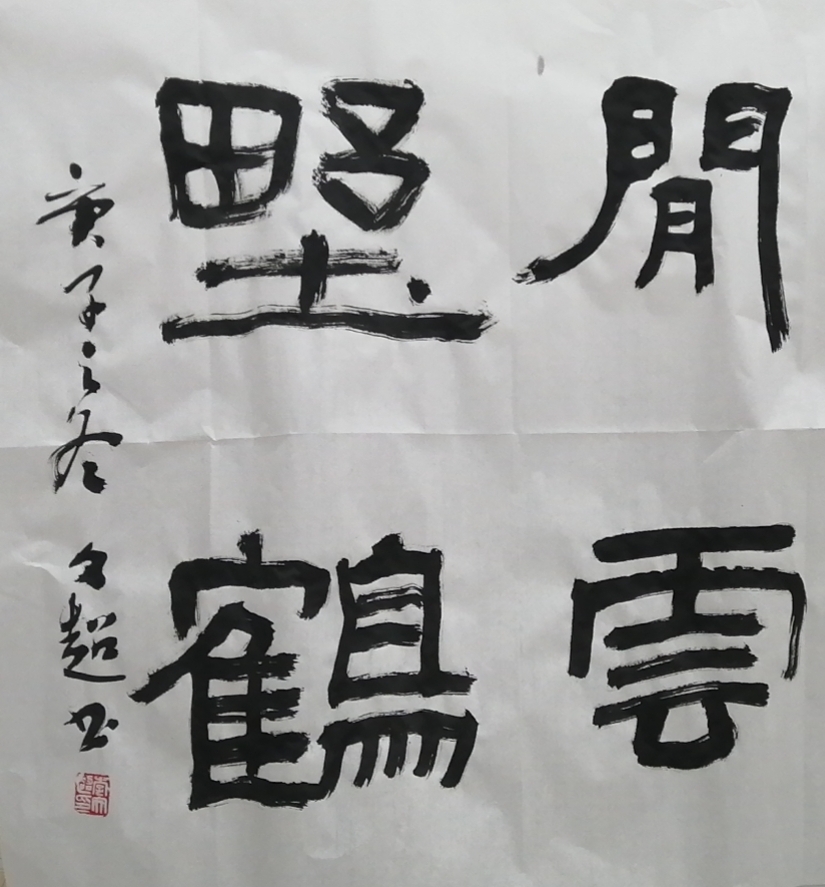 閒雲
野鶴
庚子之冬 文超书